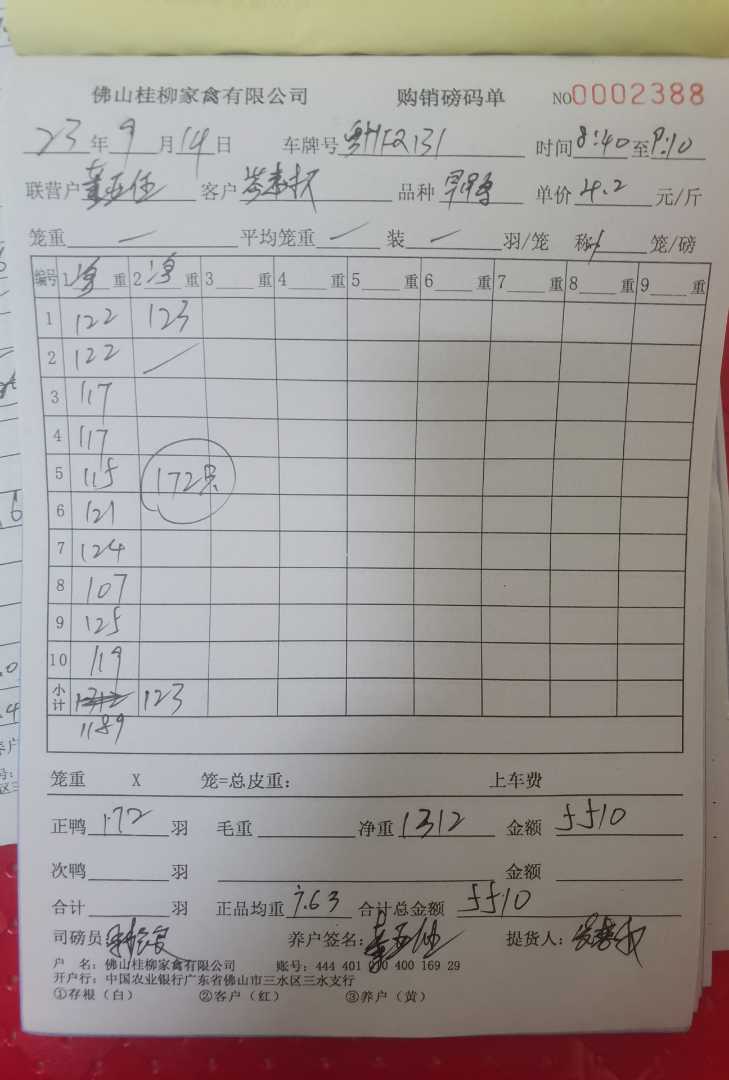 佛山桂柳家禽有限公司 购销磅码单 NO0002388
23年9月14日 车牌号 粤HF2131 时间8:40至9:10
联营户 董亚任 客户 品种 单价4.2元/斤
笼重 — 平均笼重 — 装 — 羽/笼 称 笼/磅
编号 1净重 2净重 3重 4重 5重 6重 7重 8重 9重
1 122 123
2 122
3 117
4 117
5 115 172只
6 121
7 124
8 107
9 125
10 119
小计 1312 123
1189
笼重 X 笼=总皮重: 上车费
正鸭 172 羽 毛重 净重 1312 金额 5510
次鸭 羽 金额
合计 羽 正品均重 7.63 合计总金额 5510
司磅员 养户签名: 董亚任 提货人:
户 名: 佛山桂柳家禽有限公司 账号: 444 401 400 169 29
开户行: 中国农业银行广东省佛山市三水区三水支行
①存根(白) ②客户(红) ③养户(黄)